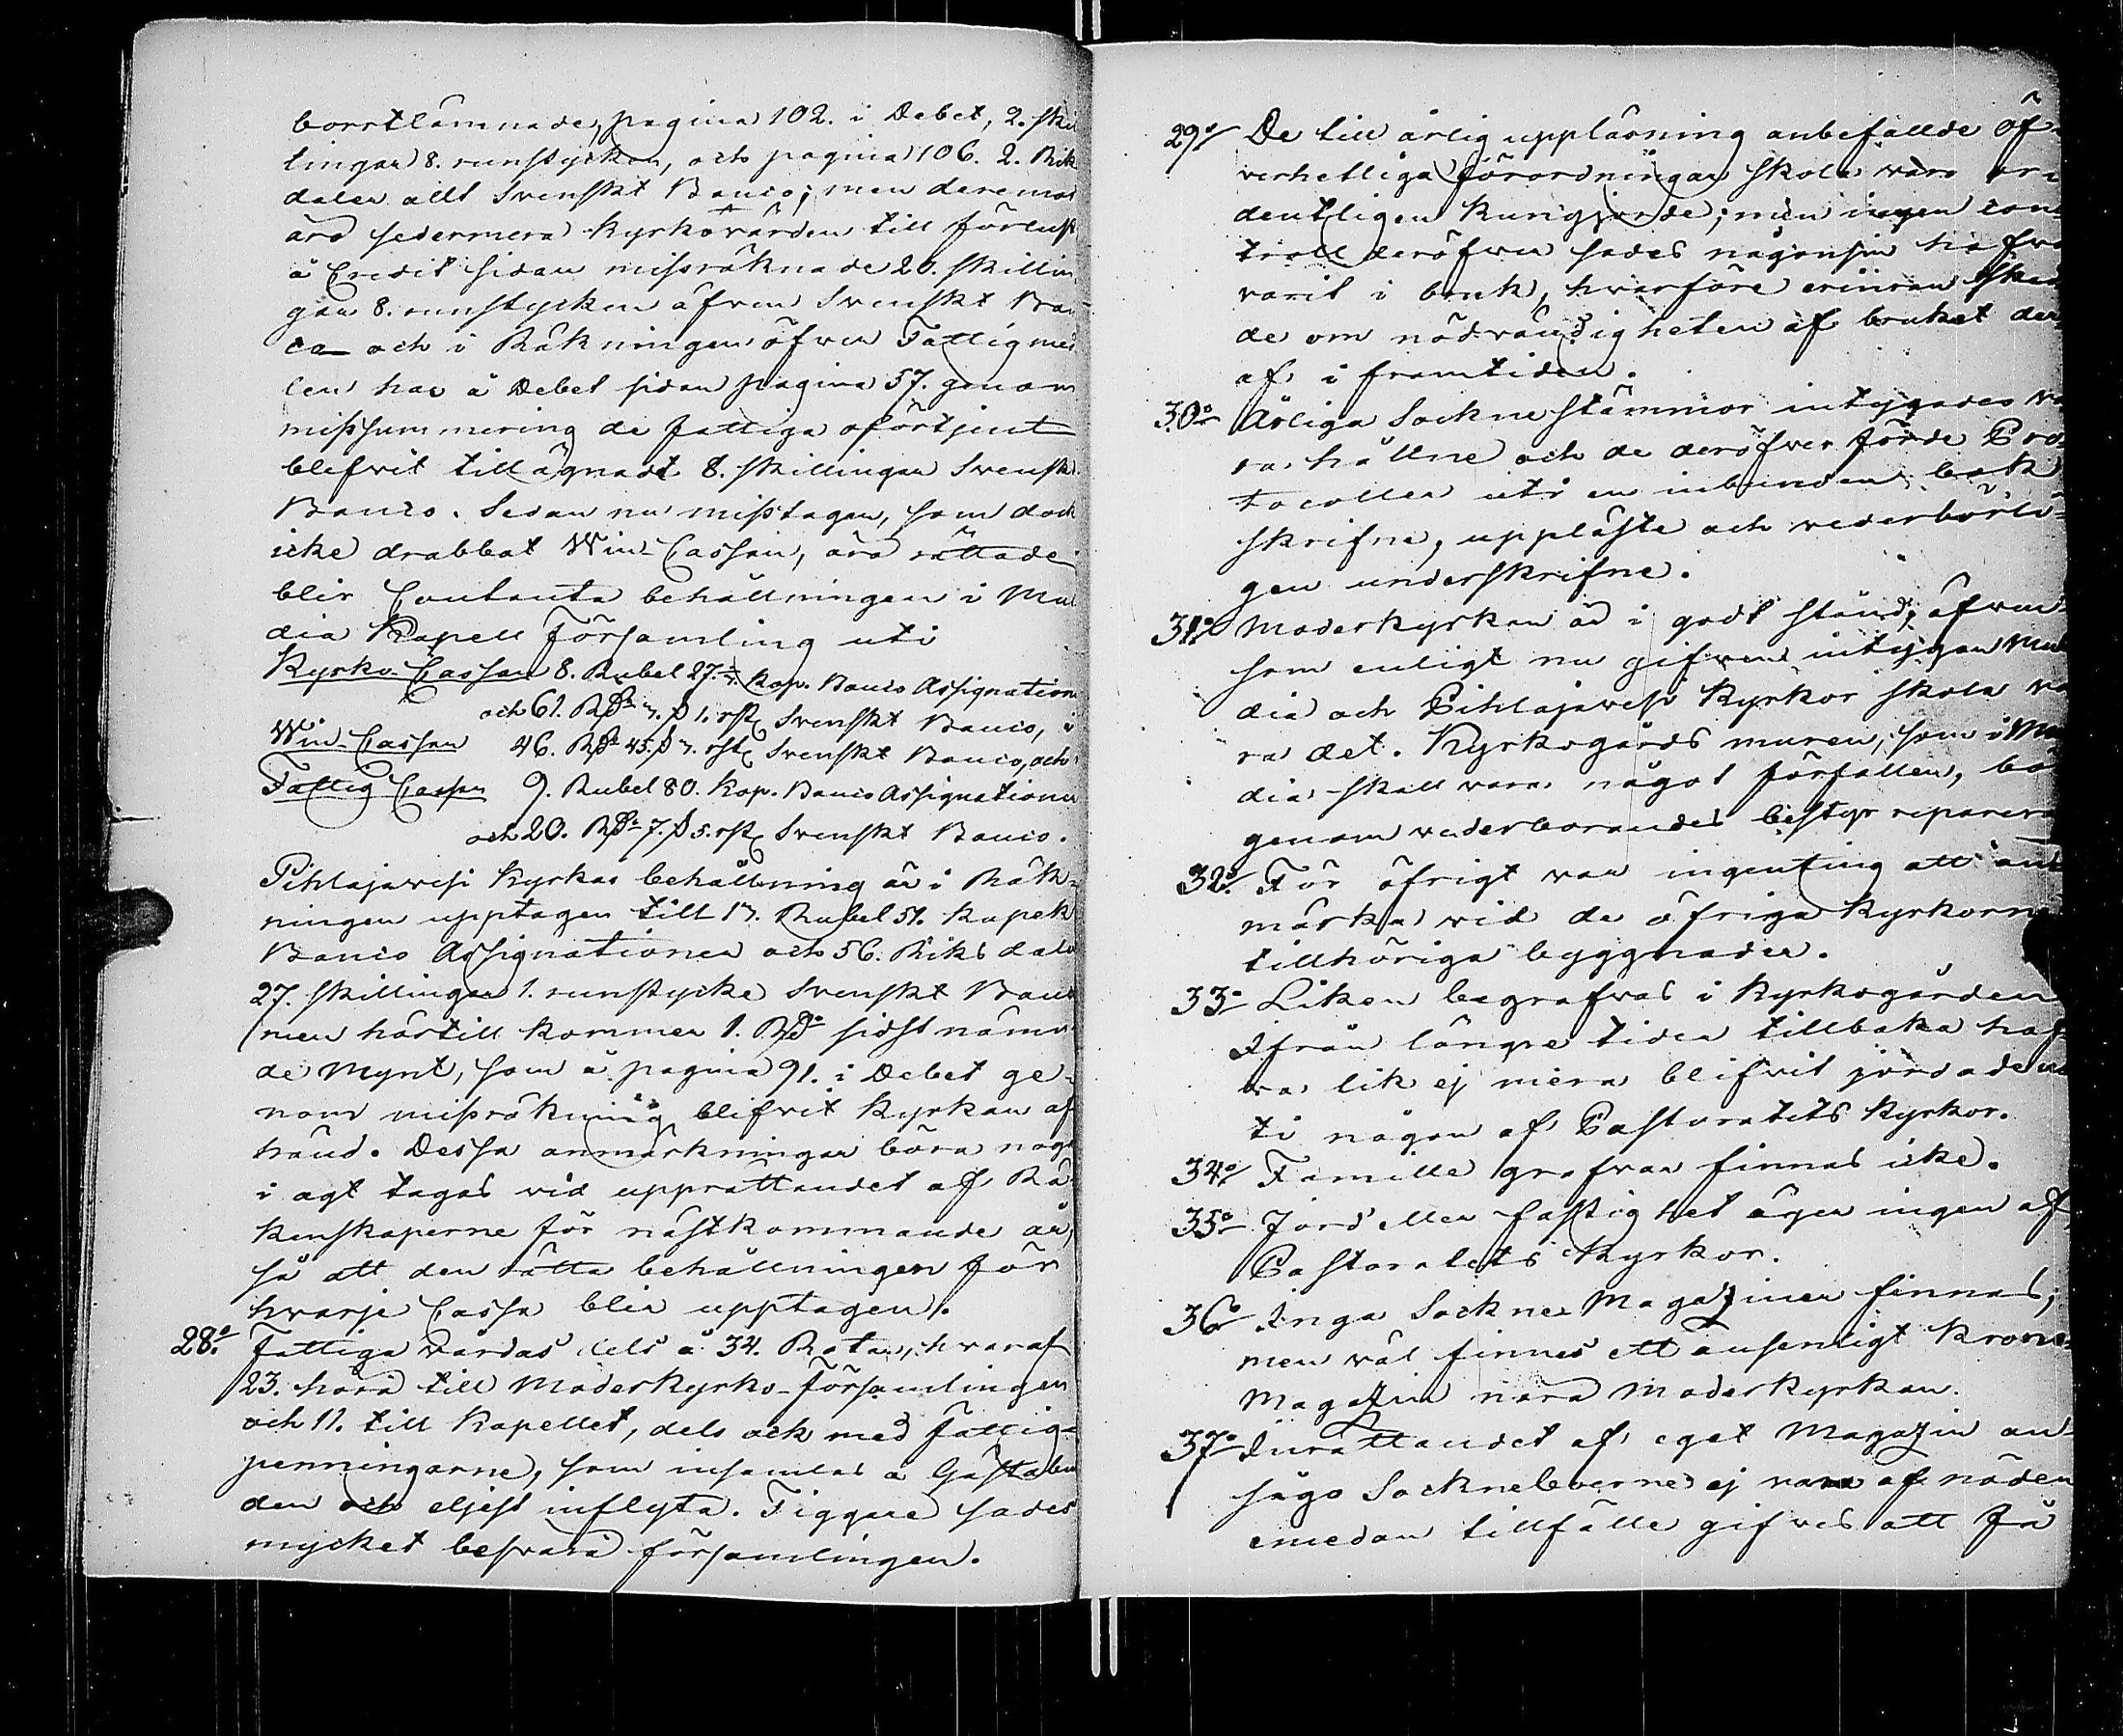 borttlämnade, pagina 102. i Debet, 2. skil
lingar 8. runstycken, och pagina 106. 2. Rik
daler allt Svenskt Banco; men deremot
äro sedermera Kyrkovärden till förlust
å Credit sidan missräknade 20. skillin
gar 8. runstycken äfven Svenskt Ban
co och i Räkningen öfver Fattigmed
len har å Debet sidan pagina 57. genom
missummering de fattiga oförtjent
blefvit tillägnadt 8. skillingar Svensk
Banco. Sedan nu misstagen, som dock
icke drabbat Win-Cassan, äro rättade
blir Contanta behållningen i Mul
dia Kapell Församling uti
Kyrko-Cassan 8. Rubel 27. Kop. Banco Assignatione
och 61. RD 7. ß 1. rst Svenskt Banco, i
Win-Cassan 46. RD 45. ß 7. rst Svenskt Banco, och
Fattig-Cassan 9. Rubel 80. Kop. Banco Assignationer
och 20. RD 7. ß 5. rst Svenskt Banco.
Pihlajawesi Kyrkas behållning är i Räk-
ningen upptagen till 17. Rubel 51. Kopek
Banco Assignationer och 56. Riksdaler
27. skillingar 1. runstycke Svenskt Banco
men härtill kommer 1. RD sidst nämn
de Mynt, som å pagina 91. i Debet ge-
nom missräkning blifvit Kyrkan af
händ. Dessa anmärkningar böra noga
i agt tagas vid upprättandet af Rä
kenskaperne för nästkommande år,
så att den rätta behållningen för
hvarje Cassa blir upptagen.
28:o Fattiga vårdas dels å 34. Rotar, hvaraf
23. höra till Moderkyrko-Församlingen
och 11. till Kapellet, dels ock med fattig-
penningarne, som insamlas å Gästabu
den och eljest inflyta. Tiggare sades
mycket besvära församlingen.
29:o De till årlig uppläsning anbefallde Öf-
verhetliga förordningar skola vara or-
dentligen kungjorde; men ingen con-
troll deröfver sades någonsin hafva
varit i bruk, hvarföre erinran sked
de om nödvändigheten af bruket der
af i framtiden.
30:o Årliga Sockne stämmor intygades va
ra hållne och de deröfver förde Pro
tocoller uti en inbunden bok
skrifne, uppläste och vederbörli-
gen underskrifne.
31:o Moderkyrkan är i godt stånd, äfven
som enligt nu gifven intygan Mul
dia och Pihlajawesi Kyrkor skola va
ra det. Kyrkogårds muren, som i Mul
dia skall vara något förfallen, bör
genom vederborandes bestyr reparera
32:o För öfrigt var ingenting att an
märka vid de öfriga Kyrkorne
tillhöriga byggnader.
33:o Liken begrafvas i Kyrkogården
Ifrån längre tider tillbaka haf
va lik ej mera blifvit jordade u
ti någon af Pastoratets Kyrkor.
34:o Famille grafvar finnas icke.
35:o Jord eller fastighet äger ingen af
Pastoratets Kyrkor.
36:o Inga Sockne Magaziner finnas;
men väl finnes ett ansenligt Krono
Magazin nära Moderkyrkan.
37:o Inrättandet af eget Magazin an
sågo Sockneboerne ej vara af nöden
emedan tillfälle gifves att få